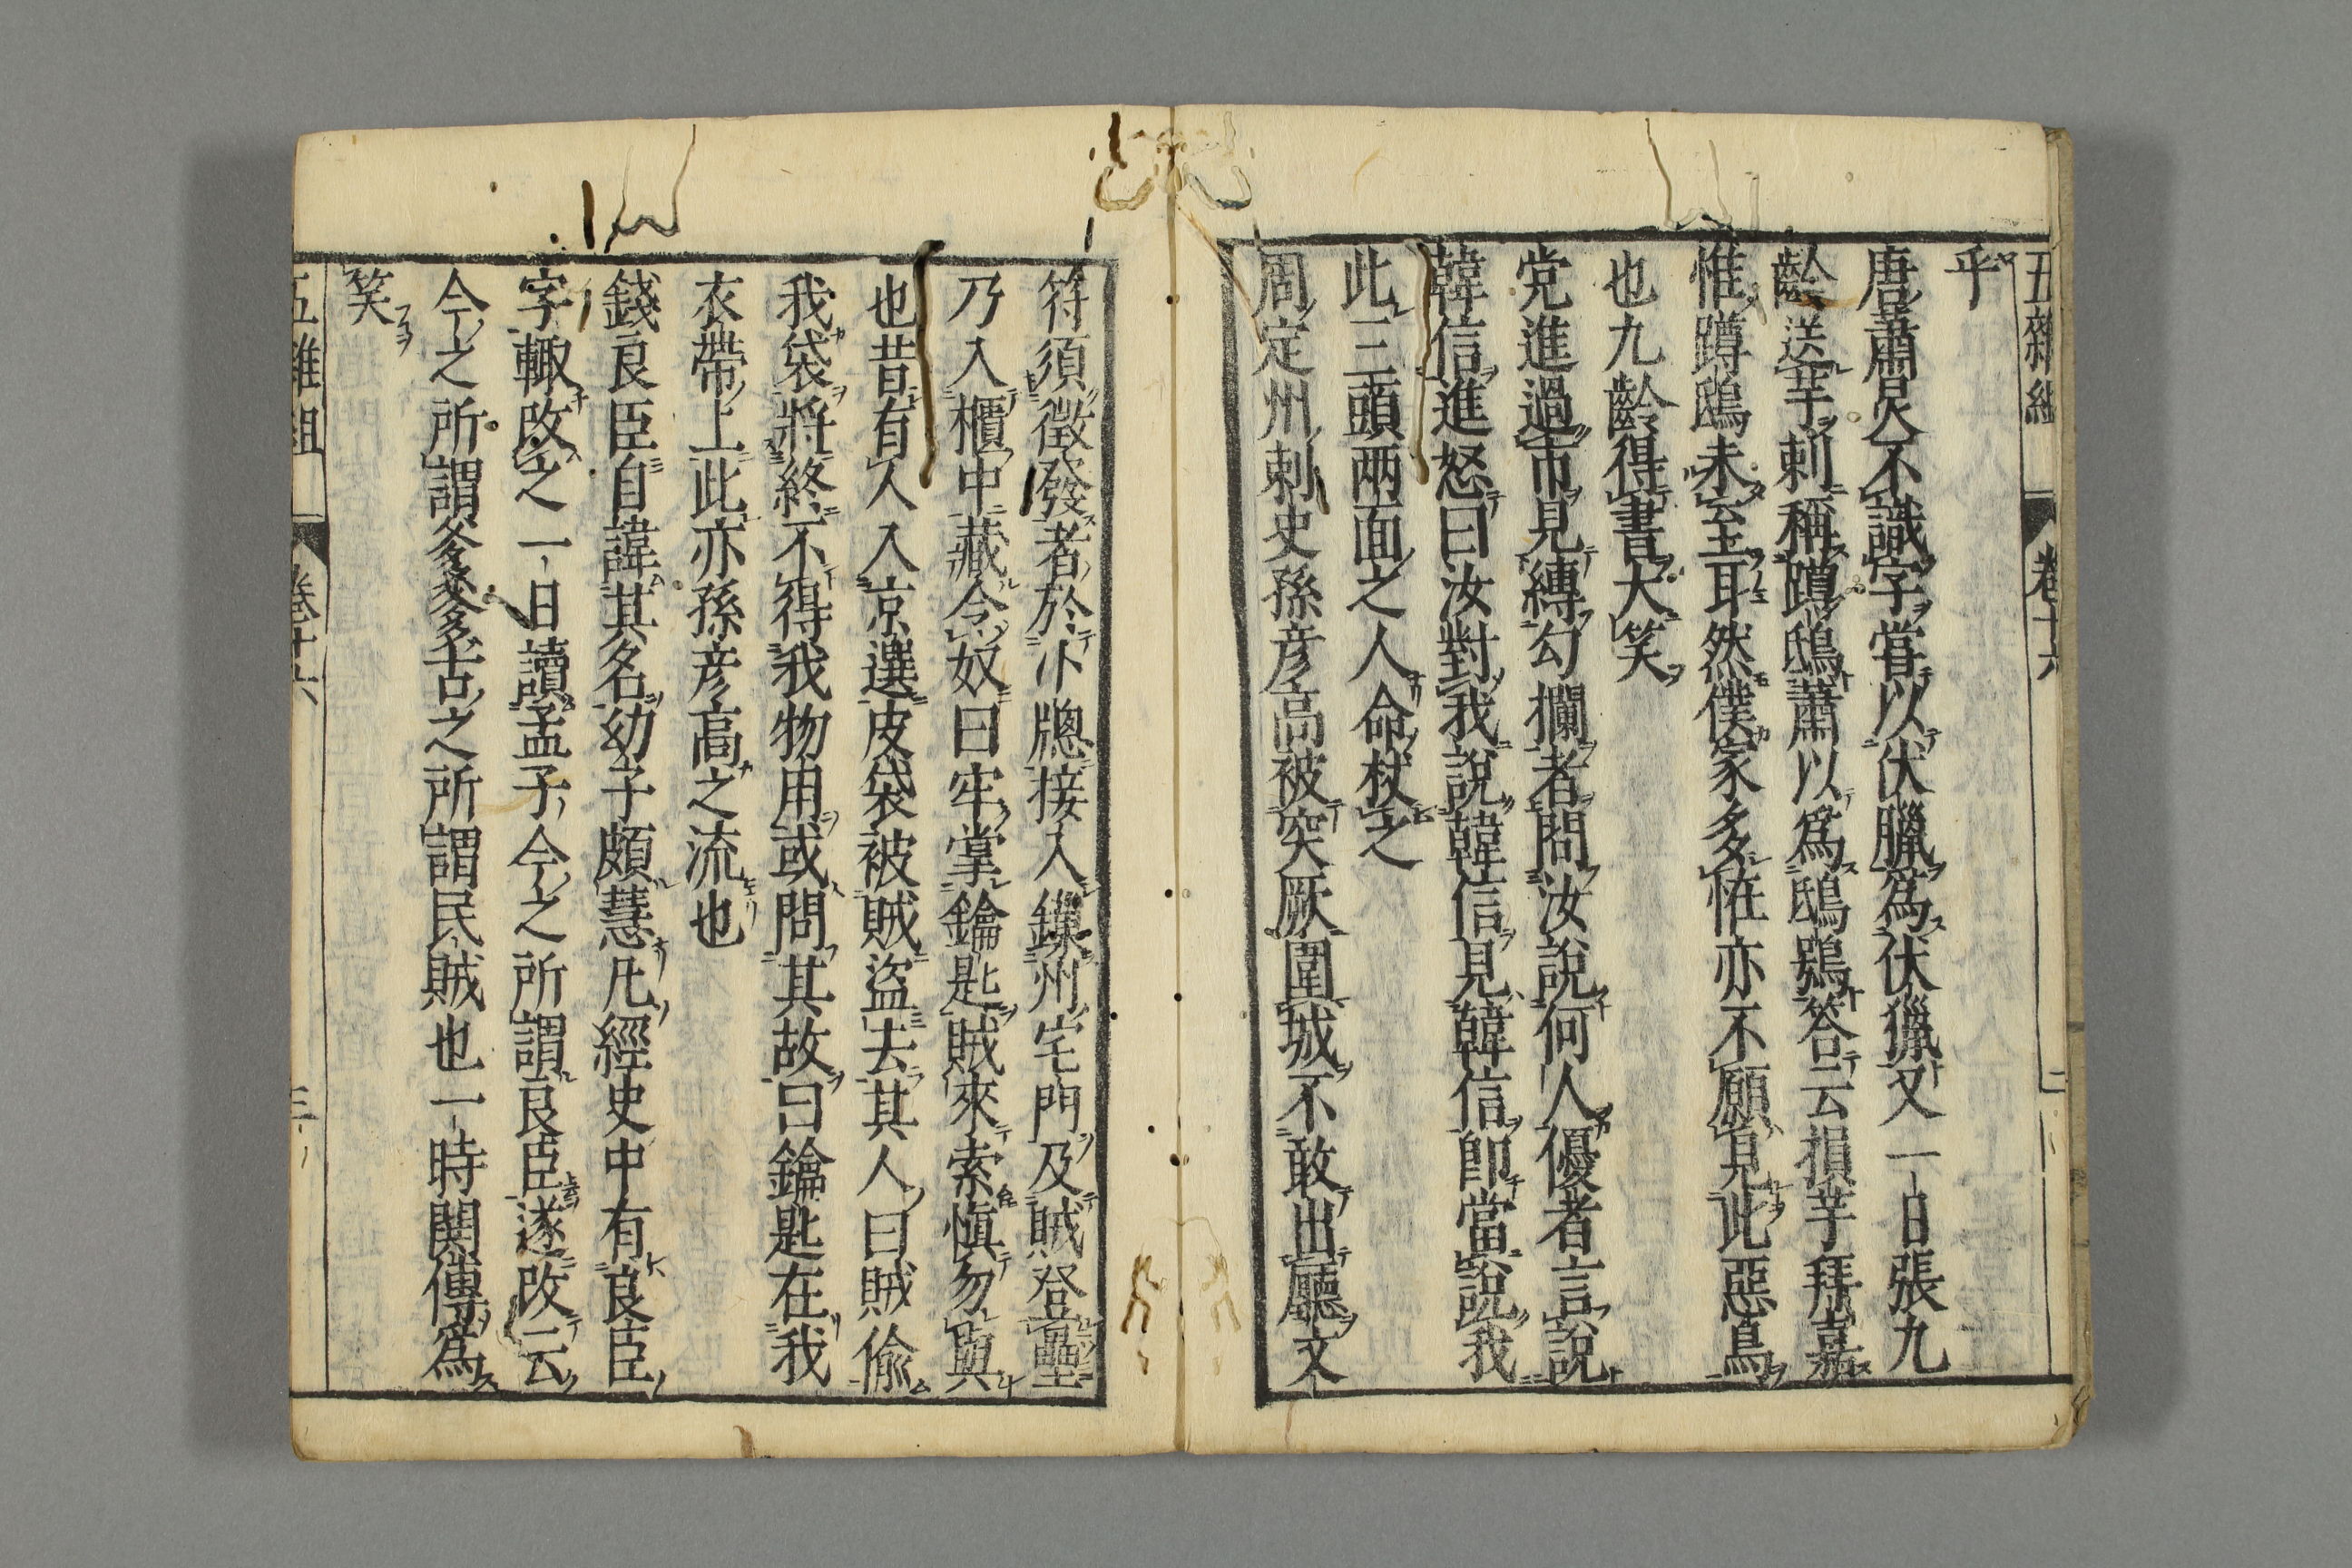 五雜組
卷十六
二
乎
唐蕭炅不識字嘗以伏臘爲伏獵又一日張九
齡送芋刺稱蹲鴟蕭以爲鴟鴞答云損芋拜嘉
惟蹲鴟未至耳然僕家多恠亦不願見此惡鳥
也九齡得書大笑
党進過市見縛勾欄者問汝說何人優者言說
韓信進怒曰汝對我說韓信見韓信卽當說我
此三頭两面之人命杖之
周定州刺史孫彥高被突厥圍城不敢出廳文
符須徵發者於小牕接入鏁州宅門及賊登壘
乃入櫃中藏令奴曰牢掌鑰匙賊來索慎勿與
也昔有人入京選皮袋被賊盜去其人曰賊偷
我袋將終不得我物用或問其故曰鑰匙在我
衣帶上此亦孫彥高之流也
錢良臣自諱其名幼子頗慧凡經史中有良臣
字輙改之一日讀孟子今之所謂良臣遂改云
今之所謂爹爹古之所謂民賊也一時鬨傳爲
笑
五雜組
卷十六
三